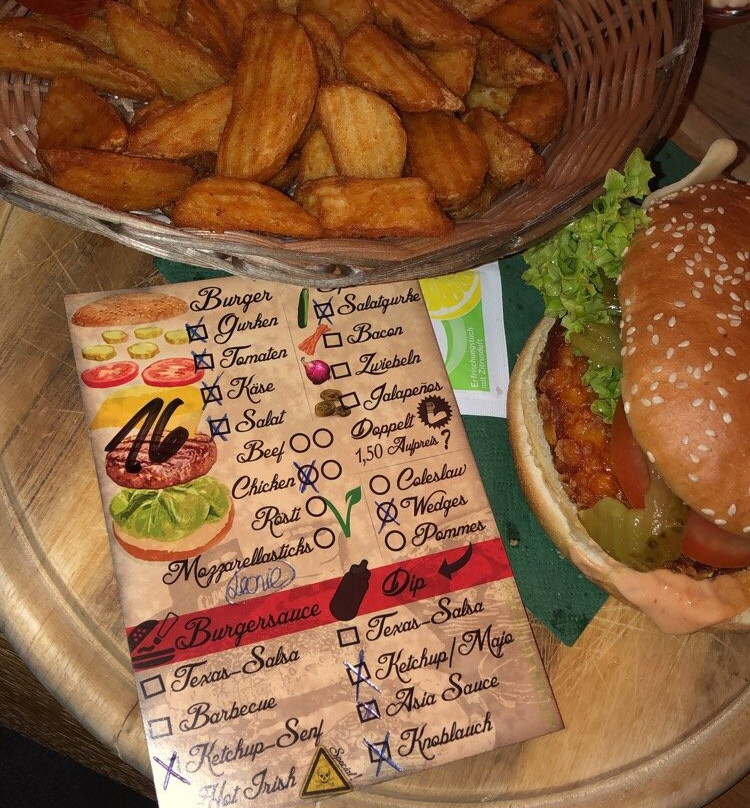 Burger
Gurken
Tomaten
Käse
Salat
16
Beef
Chicken
Rösti
Mozzarellasticks
Salatgurke
Bacon
Zwiebeln
Jalapeños
Doppelt
1,50 Aufpreis?
Coleslaw
Wedges
Pommes
Leonie
Burgersauce
Texas-Salsa
Barbecue
Ketchup-Senf
Hot Irish
Special
Dip
Texas-Salsa
Ketchup/Majo
Asia Sauce
Knoblauch
Erfrischungstuch
mit Zitronenduft